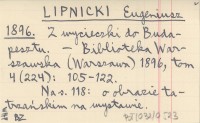 LIPNICKI Eugeniusz
1896. Z wycieczki do Buda-
pesztu. – Biblioteka War-
szawska (Warszawa) 1896, tom
4 (224): 105-122.
Na s. 118: o obrazie ta-
trzańskim na wystawie.
BZ